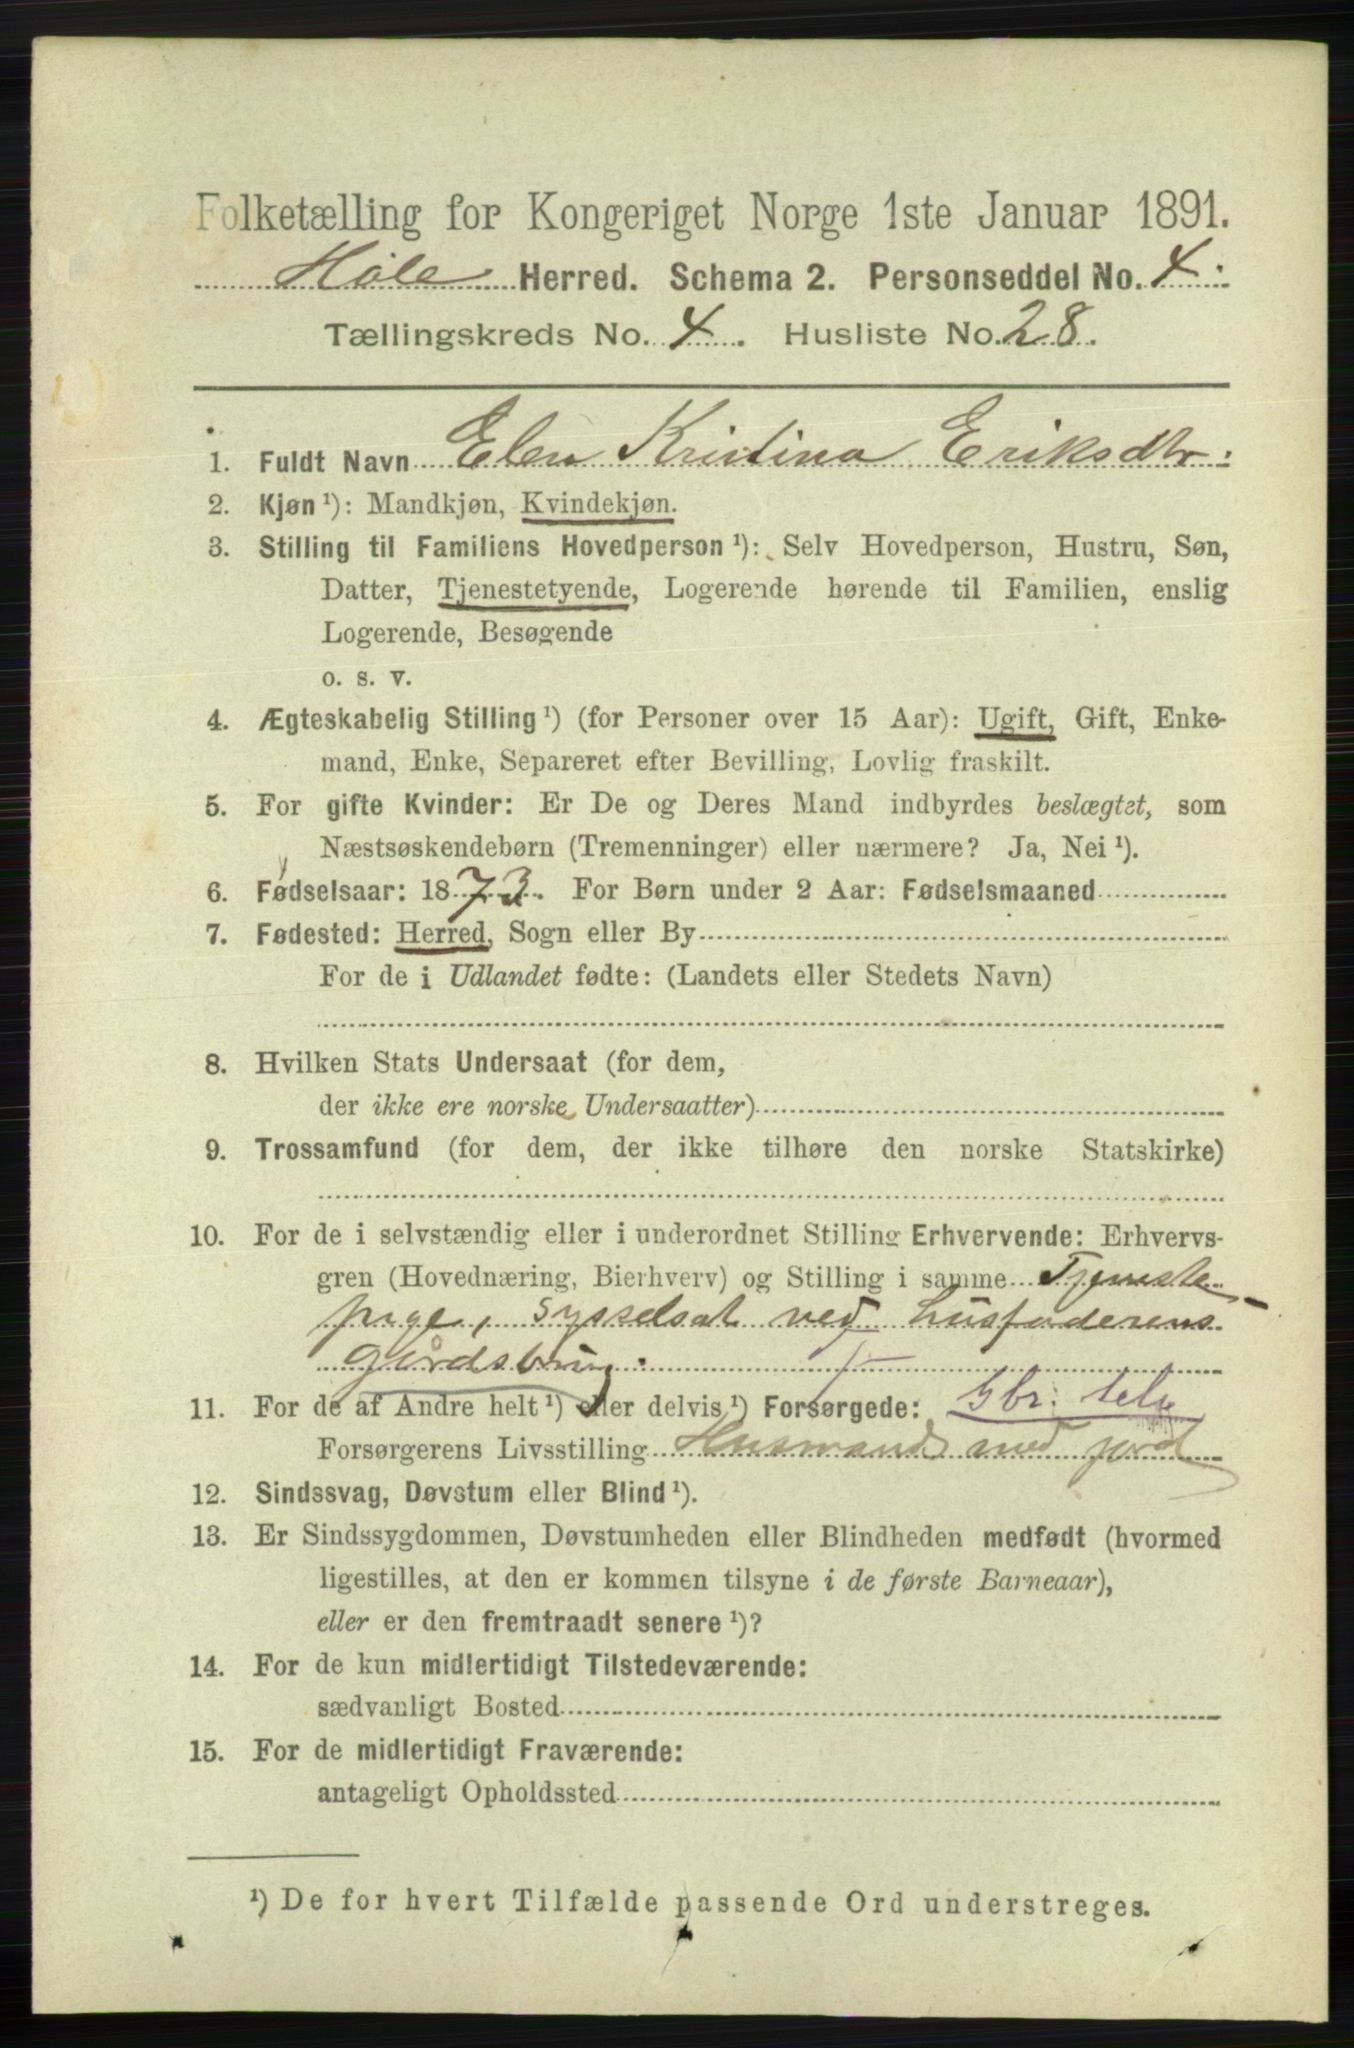 Folketælling for Kongeriget Norge 1ste Januar 1891.
Høle Herred. Schema 2. Personseddel No. 4.
Tællingskreds No. 4. Husliste No. 28.
1. Fuldt Navn Elen Kristina Eriksdtr.
2. Kjøn ¹): Mandkjøn, Kvindekjøn.
3. Stilling til Familiens Hovedperson ¹): Selv Hovedperson, Hustru, Søn,
Datter, Tjenestetyende, Logerende hørende til Familien, enslig
Logerende, Besøgende
o. s. v.
4. Ægteskabelig Stilling ¹) (for Personer over 15 Aar): Ugift, Gift, Enke-
mand, Enke, Separeret efter Bevilling, Lovlig fraskilt.
5. For gifte Kvinder: Er De og Deres Mand indbyrdes beslægtet, som
Næstsøskendebørn (Tremenninger) eller nærmere? Ja, Nei ¹).
6. Fødselsaar: 1873. For Børn under 2 Aar: Fødselsmaaned
7. Fødested: Herred, Sogn eller By
For de i Udlandet fødte: (Landets eller Stedets Navn)
8. Hvilken Stats Undersaat (for dem,
der ikke ere norske Undersaatter)
9. Trossamfund (for dem, der ikke tilhøre den norske Statskirke)
10. For de i selvstændig eller i underordnet Stilling Erhvervende: Erhvervs-
gren (Hovednæring, Bierhverv) og Stilling i samme Tjeneste-
pige, sysselsat ved husfaderens
gårdsbrug.
11. For de af Andre helt ¹) eller delvis ¹) Forsørgede: Gbr. selv
Forsørgerens Livsstilling Husmand med jord
12. Sindssvag, Døvstum eller Blind ¹).
13. Er Sindssygdommen, Døvstumheden eller Blindheden medfødt (hvormed
ligestilles, at den er kommen tilsyne i de første Barneaar),
eller er den fremtraadt senere ¹)?
14. For de kun midlertidigt Tilstedeværende:
sædvanligt Bosted
15. For de midlertidigt Fraværende:
antageligt Opholdssted
¹) De for hvert Tilfælde passende Ord understreges.